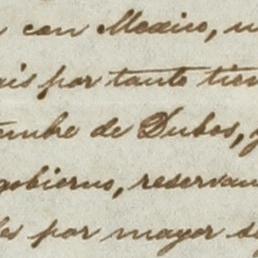 con Mexico, u
ais por tanto tien
umbre de Dubos, y
gobierno, reservan
les por mayor s